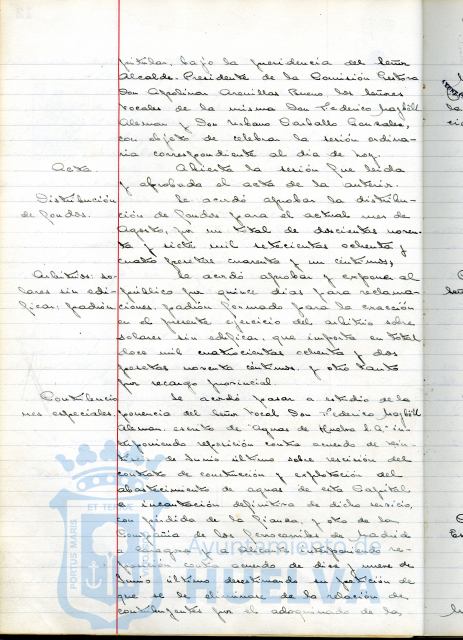 pitular, bajo la presidencia del Señor
Alcalde-Presidente de la Comisión Gestora
Don Apolinar Arenillas Bueno, los señores
Vocales de la misma Don Federico
Alemán y Don Urbano Carballo González,
con objeto de celebrar la sesión ordina-
ria correspondiente al día de hoy.
Acta. Abierta la sesión fue leída
y aprobada el acta de la anterior.
Distribución Se acordó aprobar la distribu-
de fondos. ción de fondos para el actual mes de
Agosto, por un total de doscientas noven-
ta y siete mil setecientas ochenta y
cuatro pesetas cuarenta y un céntimos,
Arbitrios: so- Se acordó aprobar y exponer al
lares sin edi- público por quince días para reclama-
ficar; padrón ciones, padrón formado para la exacción
en el presente ejercicio del arbitrio sobre
solares sin edificar, que importa en total
doce mil cuatrocientas ochenta y dos
pesetas noventa céntimos, y otro tanto
por recargo provincial.
Contribucio- Se acordó pasar a estudio de la
nes especiales. ponencia del Señor Vocal Don Federico
Alemán, escrito de "Aguas de Huelva S.A." in-
terponiendo reposición contra acuerdo de vein-
tres de Junio último sobre rescisión del
contrato de construcción y explotación del
abastecimiento de aguas de esta Capital
e incautación definitiva de dicho servicio,
con pérdida de la fianza, y otro de la
Compañía de los Ferrocarriles de Madrid
a Zaragoza y Alicante interponiendo re-
posición contra acuerdo de diez y nueve de
Junio último desestimando su petición de
que se la eliminase de la relación de
contribuyentes por el adoquinado de la
ET TERRAE
PORTUS MARIS
Ayuntamiento de
HUELVA